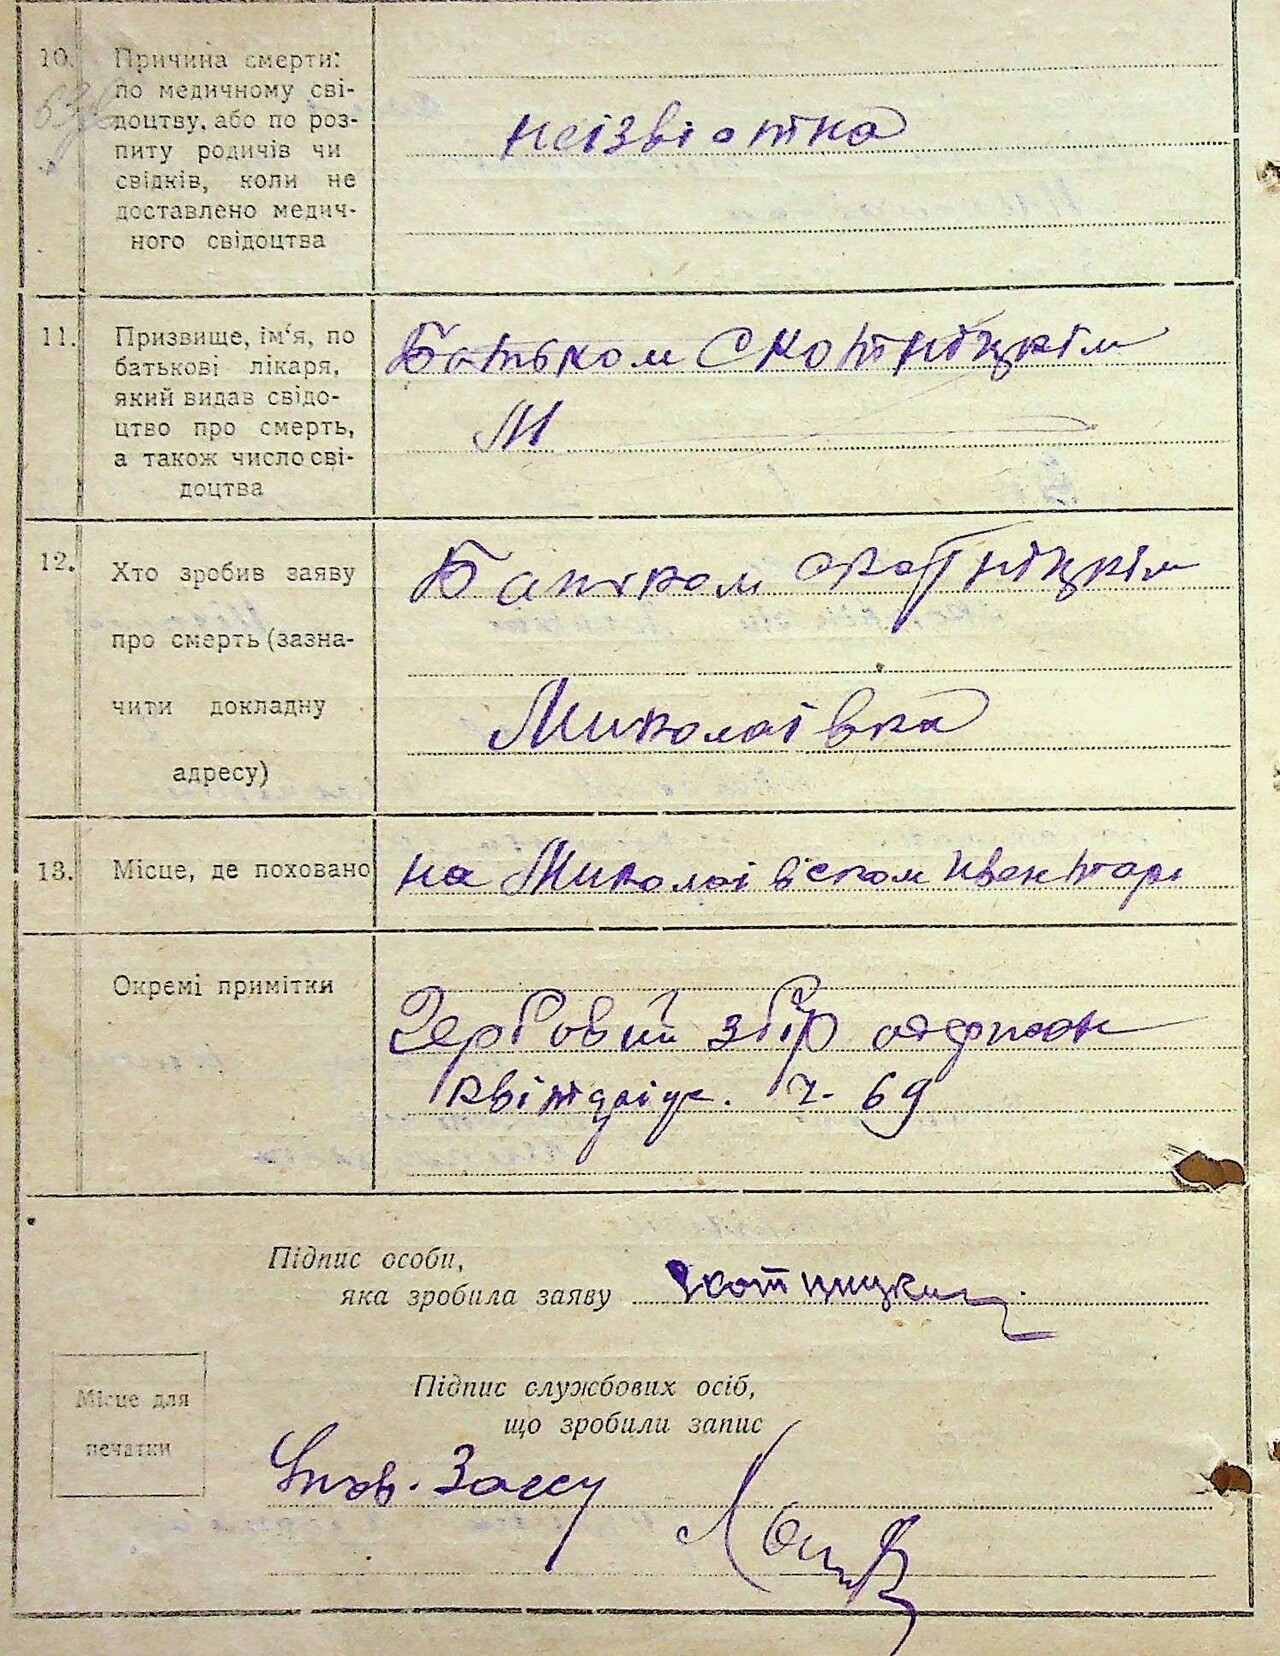 10. Причина смерти:
по медичному сві-
доцтву, або по роз-
питу родичів чи
свідків, коли не
доставлено медич-
ного свідоцтва
неізвістна
11. Призвище, ім'я, по
батькові лікаря,
який видав свідо-
цтво про смерть,
а також число сві-
доцтва
Батьком Скотніцкім
М
12. Хто зробив заяву
про смерть (зазна-
чити докладну
адресу)
Батьком Скотніцкім
Миколаівка
13. Місце, де поховано
на Миколаівском
Окремі примітки
Гербовий збір
ч. 69
Підпис особи,
яка зробила заяву
Місце для
печатки
Підпис службових осіб,
що зробили запис